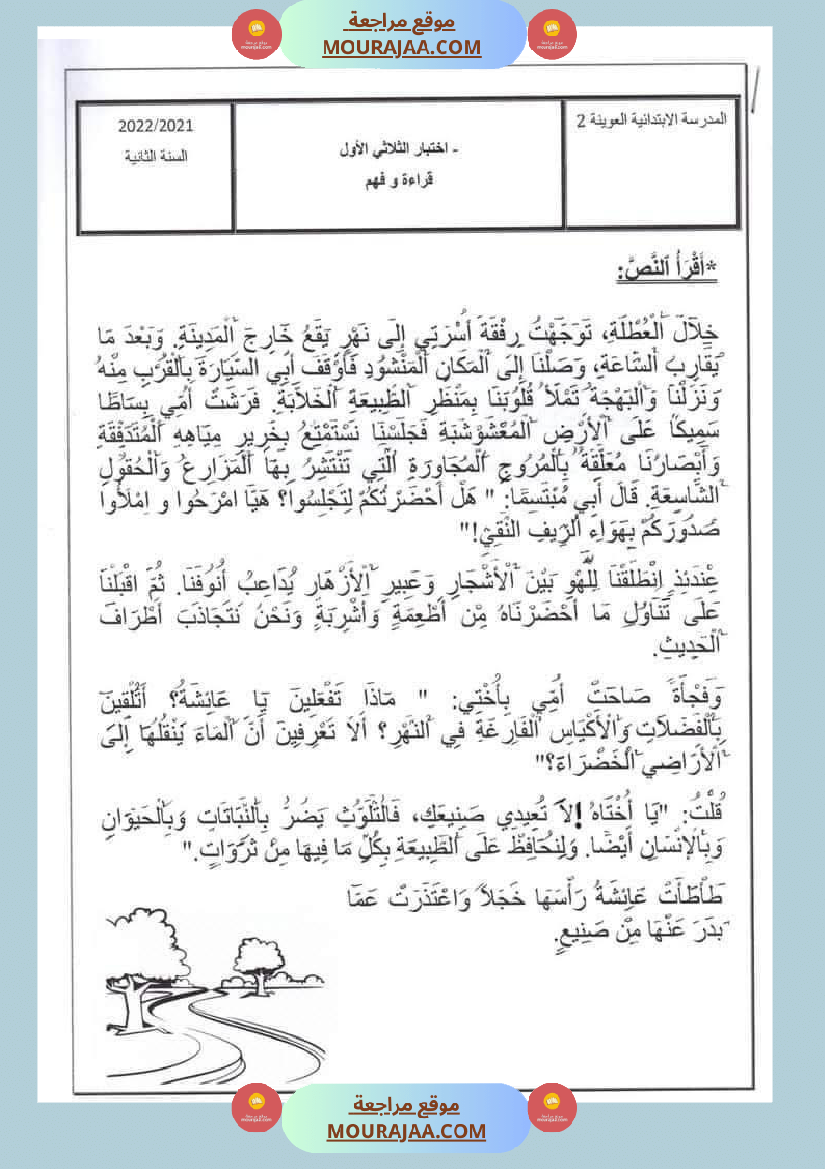 موقع مراجعة
MOURAJAA.COM
المدرسة الابتدائية العوينة 2
- اختبار الثلاثي الأول
قراءة و فهم
2022/2021
السنة الثانية
*أَقْرَأُ ٱلنَّصَّ:
خِلَالَ ٱلْعُطْلَةِ، تَوَجَّهْتُ رِفْقَةَ أُسْرَتِي إِلَى نَهْرٍ يَقَعُ خَارِجَ ٱلْمَدِينَةِ. وَبَعْدَ مَا
يُقَارِبُ ٱلسَّاعَةِ، وَصَلْنَا إِلَى ٱلْمَكَانِ ٱلْمَنْشُودِ فَأَوْقَفَ أَبِي السَّيَّارَةَ بِالْقُرْبِ مِنْهُ
وَنَزَلْنَا وَٱلْبَهْجَةُ تَمْلَأُ قُلُوبَنَا بِمَنْظَرِ ٱلطَّبِيعَةِ ٱلْخَلَّابَةِ. فَرَشَتْ أُمِّي بِسَاطًا
سَمِيكًا عَلَى ٱلْأَرْضِ ٱلْمُعْشَوْشَبَةِ فَجَلَسْنَا نَسْتَمْتِعُ بِخَرِيرِ مِيَاهِهِ ٱلْمُتَدَفِّقَةِ
وَأَبْصَارُنَا مُعَلَّقَةٌ بِٱلْمُرُوجِ ٱلْمُجَاوِرَةِ ٱلَّتِي تَنْتَشِرُ بِهَا ٱلْمَزَارِعُ وَٱلْحُقُولُ
ٱلشَّاسِعَةِ. قَالَ أَبِي مُبْتَسِمًا: " هَلْ أَحْضَرْتُكُمْ لِتَجْلِسُوا؟ هَيَّا امْرَحُوا و امْلَأُوا
صُدُورَكُمْ بِهَوَاءِ ٱلرِّيفِ النَّقِيِّ!"
عِنْدَئِذٍ اِنْطَلَقْنَا لِلَّهْوِ بَيْنَ ٱلْأَشْجَارِ وَعَبِيرِ ٱلْأَزْهَارِ يُدَاعِبُ أُنُوفَنَا. ثُمَّ اقْبَلْنَا
عَلَى تَنَاوُلِ مَا أَحْضَرْنَاهُ مِنْ أَطْعِمَةٍ وَأَشْرِبَةٍ وَنَحْنُ نَتَجَاذَبَ أَطْرَافَ
ٱلْحَدِيثِ.
وَفَجْأَةً صَاحَتْ أُمِّي بِأُخْتِي: " مَاذَا تَفْعَلِينَ يَا عَائِشَةُ؟ أَتُلْقِينَ
بِٱلْفَضَلَاتِ وَٱلْأَكْيَاسِ ٱلْفَارِغَةِ فِي ٱلنَّهْرِ؟ أَلَا تَعْرِفِينَ أَنَّ ٱلْمَاءَ يَنْقُلُهَا إِلَى
ٱلْأَرَاضِي ٱلْخَضْرَاءَ؟"
قُلْتُ: "يَا أُخْتَاهُ! لَا تُعِيدِي صَنِيعَكِ، فَالتَّلَوُّثُ يَضُرُّ بِٱلنَّبَاتَاتِ وَبِٱلْحَيَوَانِ
وَبِالْإِنْسَانِ أَيْضًا. وَلِنُحَافِظْ عَلَى ٱلطَّبِيعَةِ بِكُلِّ مَا فِيهَا مِنْ ثَرَوَاتٍ."
طَأْطَأَتْ عَائِشَةُ رَأْسَهَا خَجَلًا وَاعْتَذَرَتْ عَمَّا
بَدَرَ عَنْهَا مِنْ صَنِيعٍ.
موقع مراجعة
MOURAJAA.COM